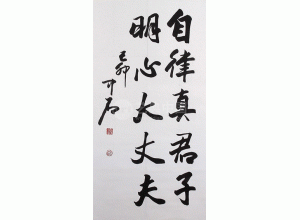 自律真君子
明心大丈夫
己卯
可石